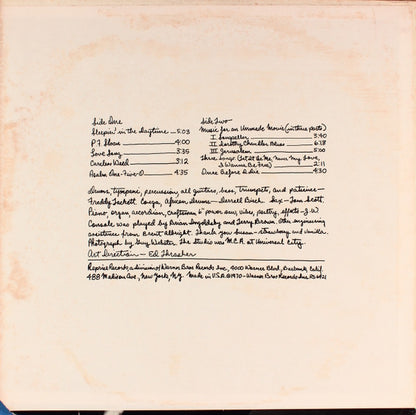 Side One
Sleepin' in the Daytime 5:03
P.F. Sloan 4:00
Love Song 3:35
Careless Weed 3:12
Psalm One-Five-O 4:35
Side Two
Music for an Unmade Movie (in three parts)
I Songseller 3:40
II Dorothy Chandler Blues 6:18
III Jerusalem 5:00
Three Songs (Let It Be Me, Now My Love,
I Wanna Be Free) 2:11
Once Before I Die 4:30
Drums, tympani, percussion, all guitars, bass, trumpets, and patience —
Freddy Tackett. Conga, African drums — Darrell Birch. Sax — Tom Scott.
Piano, organ, accordion, craftsman power saw, vibes, poetry, efforts — J.W.
Console was played by Brian Ingoldsby and Jerry Brown. Other engineering
assistance from Brent Albright. Thank you Susan — strawberry and vanilla.
Photograph by Guy Webster. The studio was M.C.A. at Universal City.
Art Direction — Ed Thrasher
Reprise Records, a division of Warner Bros Records Inc., 4000 Warner Blvd., Burbank, Calif.
488 Madison Ave., New York, N.Y. Made in U.S.A. ©1970 — Warner Bros Records Inc. RS 6421